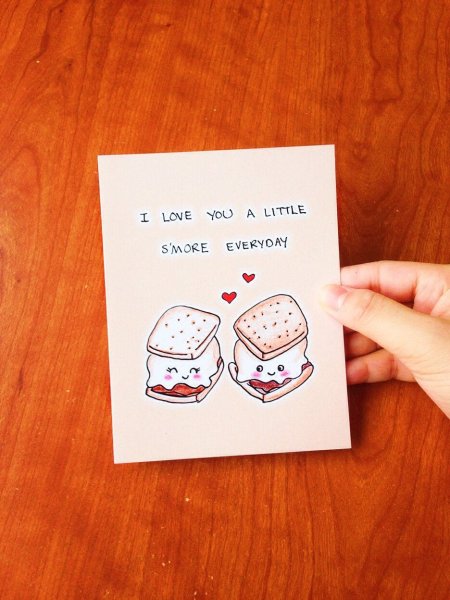 I LOVE YOU A LITTLE
S'MORE EVERYDAY